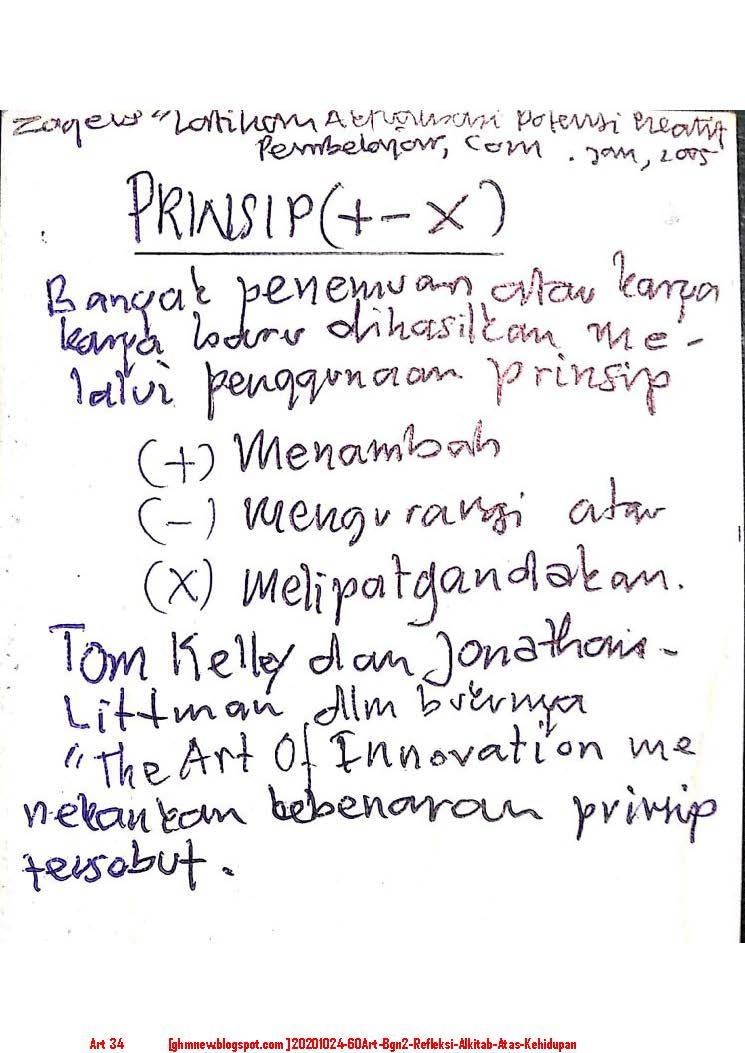 Zagews "Latihan Aktualisasi Potensi Kreatif
Pembelajar, Com . Jan, 2005
PRINSIP (+ - x)
Banyak penemuan atau karya
karya baru dihasilkan me -
lalui penggunaan prinsip
(+) Menambah
(-) Mengurangi atau
(X) Melipatgandakan.
Tom Kelley dan Jonathan -
Littman dlm bukunya
"The Art Of Innovation me
nekankan kebenaran prinsip
tersebut.
Art 34 [ghmnew.blogspot.com ]20201024-60Art-Bgn2-Refleksi-Alkitab-Atas-Kehidupan